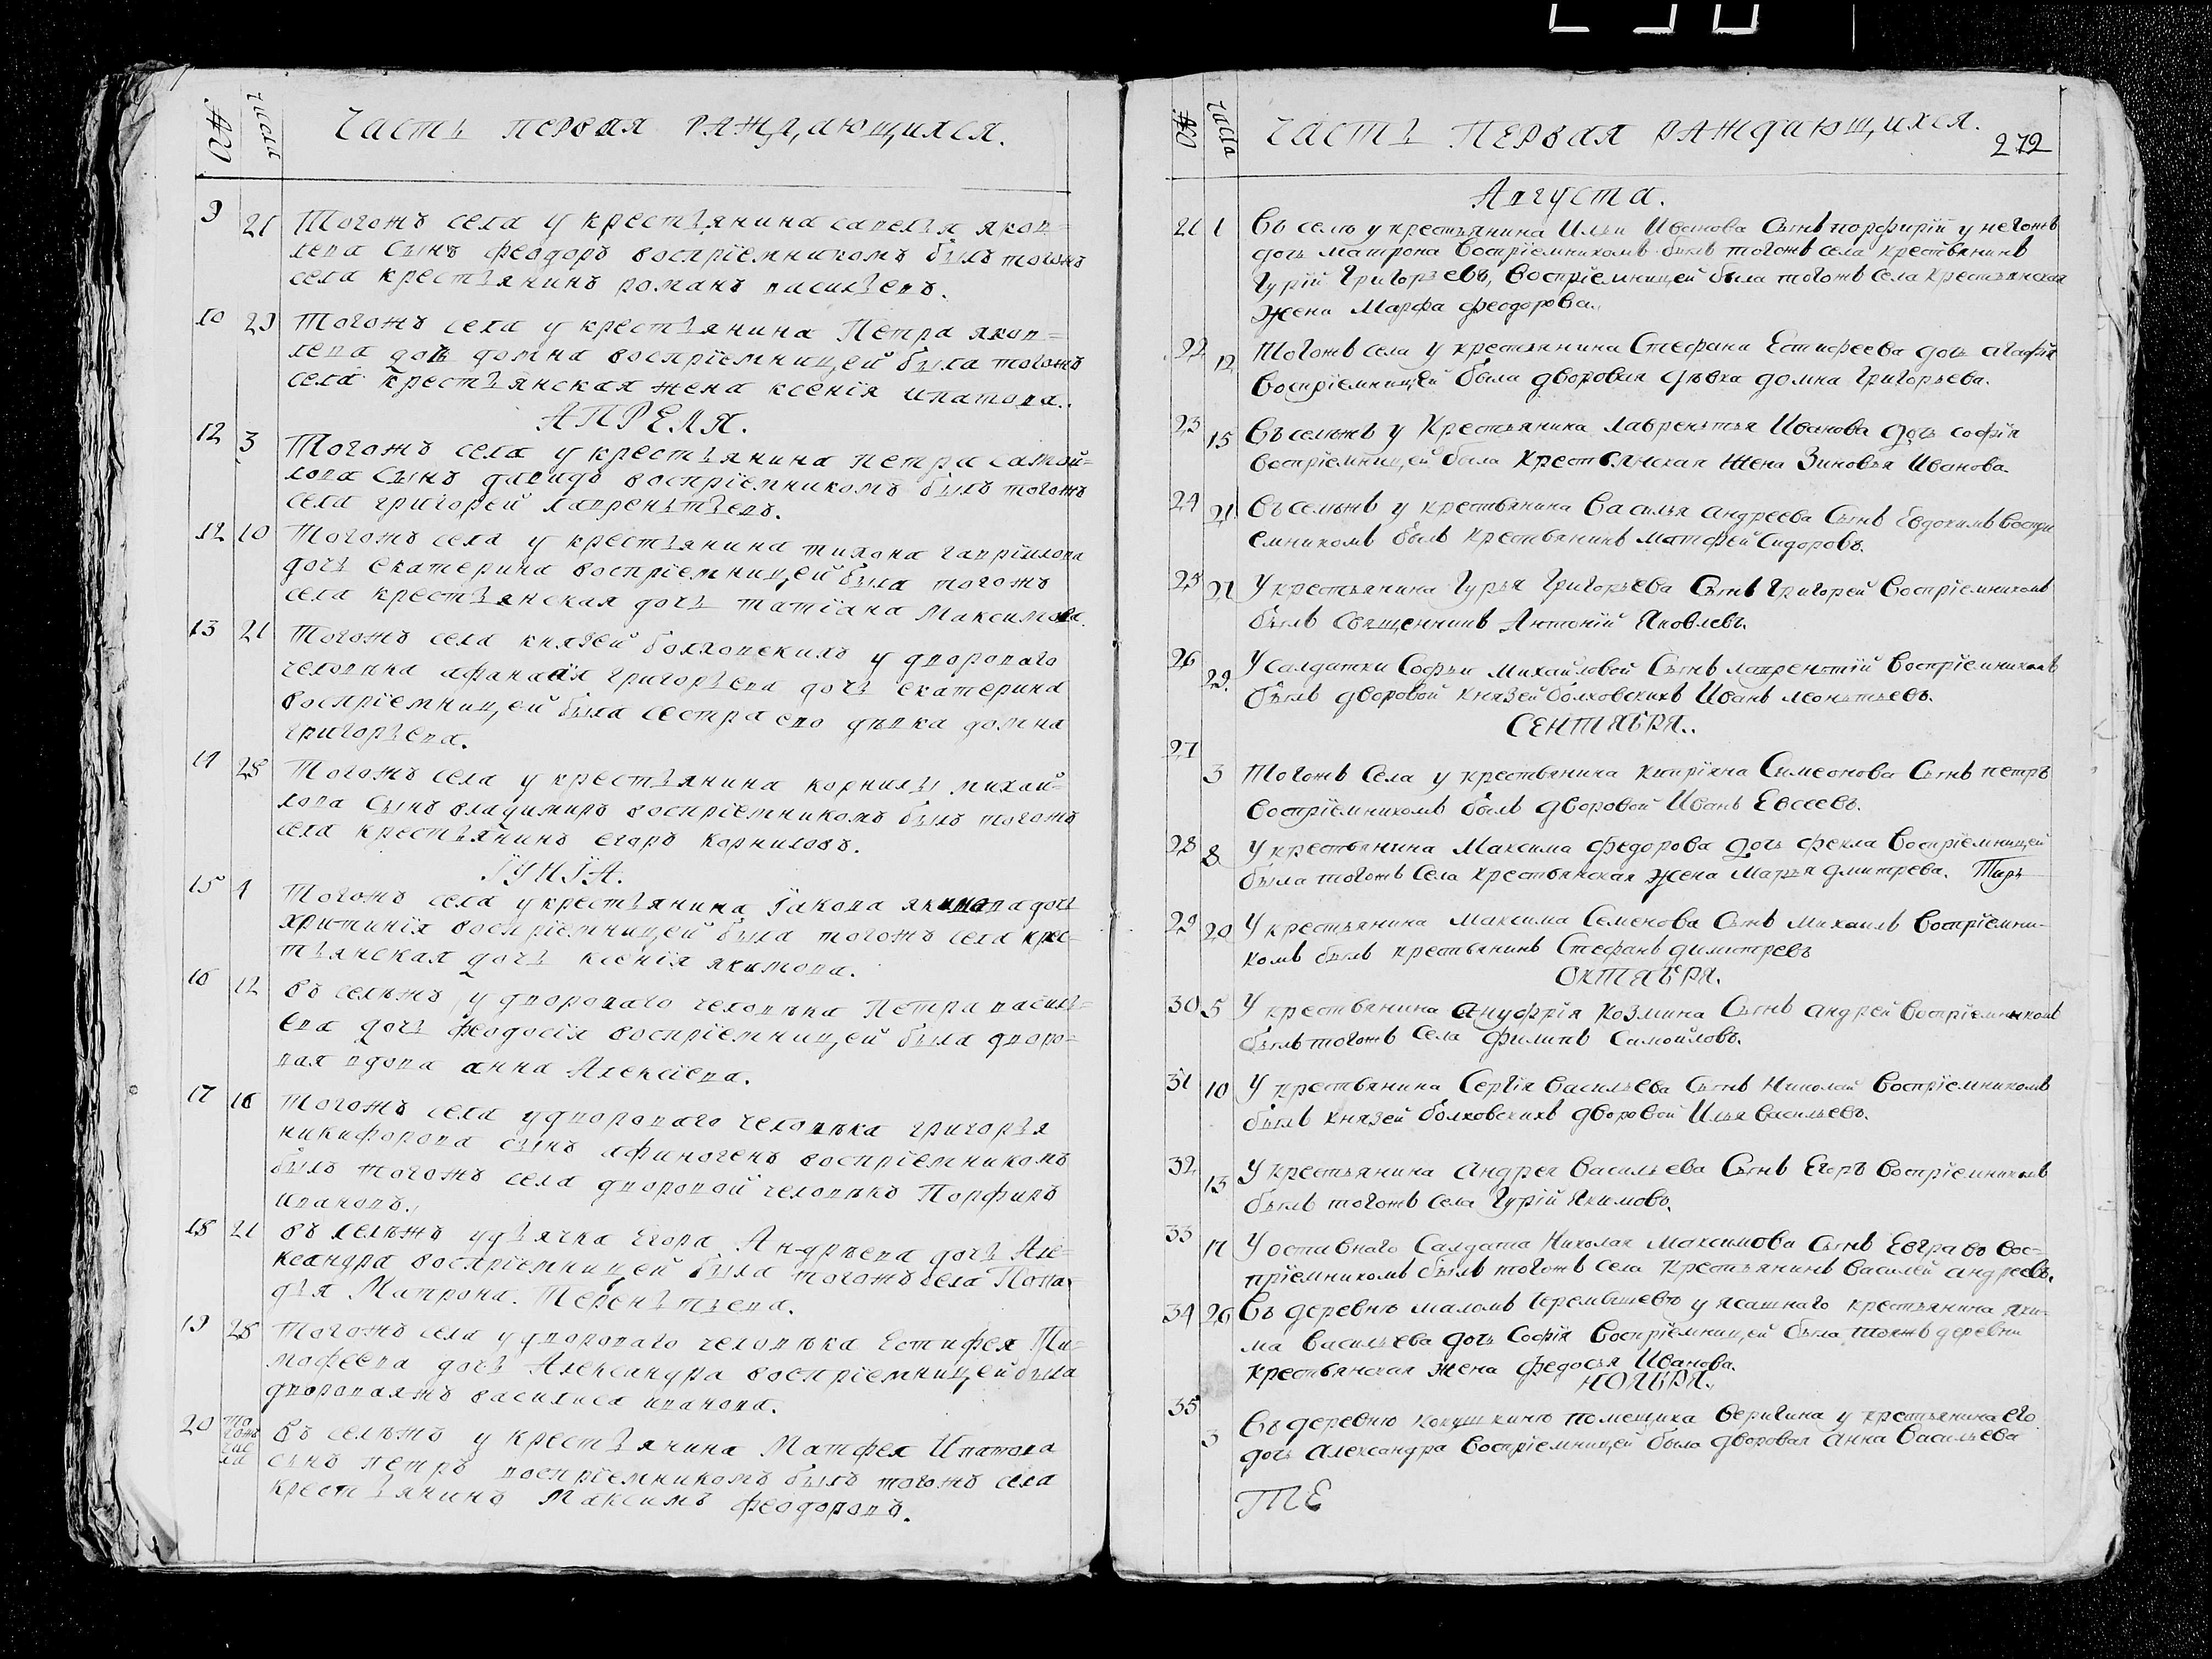 №
числа
Часть первая раждающихся.
9 21 Тогожъ села у крестьянина савелья яков=
лева сынъ феодоръ воспрїемникомъ былъ тогожъ
села крестьянинъ романъ васильевъ.
10 29 Тогожъ села у крестьянина Петра яков=
лева дочь домна воспрїемницей была тогожъ
села крестьянская жена ксенїя ипатова.
АПРЕЛЯ.
12 3 Тогожъ села у крестьянина петра самой=
лова сынъ давидъ воспрїемникомъ былъ тогожъ
села григорей лаврентьевъ.
12 10 Тогожъ села у крестьянина тихона гаврїилова
дочь екатерина воспрїемницей была тогожъ
села крестьянская дочь татїана Максимова.
13 21 Тогожъ села князей болховскихъ у двороваго
человѣка афанасїя григорьева дочь екатерина
воспрїемницей была сестра ево дѣвка домна
григорьева.
14 25 Тогожъ села у крестьянина корнилы михай=
лова сынъ владимиръ воспрїемникомъ былъ тогожъ
села крестьянинъ егоръ корниловъ.
ЇУНЇА.
15 4 Тогожъ села у крестьянина їакова якимова дочь
христинїя воспрїемницей была тогожъ села крес-
тьянская дочь ксенїя якимова.
16 12 Въ селѣжъ у двороваго человѣка Петра василь=
ева дочь феодосїя воспрїемницей была дворо=
вая вдова анна Алексїева.
17 16 Тогожъ села у двороваго человѣка григорья
никифорова сынъ афиногенъ воспрїемникомъ
былъ тогожъ села дворовой человѣкъ Порфиръ
ивановъ.
18 21 Въ селѣжъ у дьячка Егора Андрѣева дочь Але=
ксандра воспрїемницей была тогожъ села Пона=
дья Матрона Терентьева.
19 28 Тогожъ села у двороваго человѣка Естифея Ти=
мофеева дочь Александра воспрїемницей была
двороваяжъ василиса иванова.
20 того жъ числа Въ селѣжъ у крестьянина Матфея Ипатова
сынъ петръ воспрїемникомъ былъ тогожъ села
крестьянинъ Максимъ феодоровъ.
№
числа
Часть Первая раждающихся. 272
Августа.
21 1 Въ селѣ у крестьянина Ильи Иванова Сынъ порфирїй у негожъ
дочь матрона Воспрїемникомъ былъ тогожъ села крестьянинъ
Гурїй Григорьевъ, Воспрїемницей была тогожъ Села крестьянская
жена Марфа феодорова.
22 12 Тогожъ села у крестьянина Стефана Естифеева дочь агафїя
Воспрїемницей была дворовая дѣвка домна Григорьева.
23 15 Въ селѣжъ у Крестьянина лаврентья Иванова дочь софїя
воспрїемницей была крестьянская жена Зиновья Иванова.
24 21 Въ селѣжъ у крестьянина Василья андреева Сынъ Евдокимъ Воспри
емникомъ былъ крестьянинъ матфей Сидоровъ.
25 21 У крестьянина Гурья Григорьева Сынъ Григорей Воспрїемникомъ
былъ Священникъ Антонїй Яковлевъ.
26 29. У Салдатки Софьи Михайловой Сынъ лаврентїй Воспрїемникомъ
былъ дворовой князей болховскихъ Иванъ Леонтьевъ.
СЕНТЯБРЯ.
27 3 Тогожъ Села у крестьянина кипріяна Симеонова Сынъ петръ
Воспрїемникомъ былъ дворовой Иванъ Евсеевъ.
28 8 У крестьянина Максима федорова дочь фекла Воспрїемницей
была тогожъ Села крестьянская жена Марья дмитрева.
29 20 У крестьянина Максима Семенова Сынъ Михаилъ Воспрїемни-
комъ былъ крестьянинъ Стефанъ димитревъ
ОКТЯБРЯ.
30 5 У крестьянина ануфрїя Козмина Сынъ андрей Воспрїемникомъ
былъ тогожъ Села филипъ Самойловъ.
31 10 У крестьянина Сергїя Васильева Сынъ Николай Воспрїемникомъ
былъ князей болховскихъ дворовой Илья васильевъ.
32 13 У крестьянина андрея Васильева Сынъ Егоръ Воспрїемникомъ
былъ тогожъ села Гурїй Якимовъ.
33 17 У оставнаго Салдата Николая Максимова Сынъ Евграфъ вос=
прїемникомъ былъ тогожъ села крестьянинъ Василей андреевъ.
34 26 Въ деревнѣ маломъ у ясашнаго крестьянина яки-
ма Васильева дочь Софїя Воспрїемницей была тояжъ деревни
крестьянская жена федосья Иванова.
НОЯБРЯ.
35 3 Въ деревню кокушкиню помещика Веригина у крестьянина его
дочь Александра Воспрїемницей была дворовая Анна Васильева
ТЕ